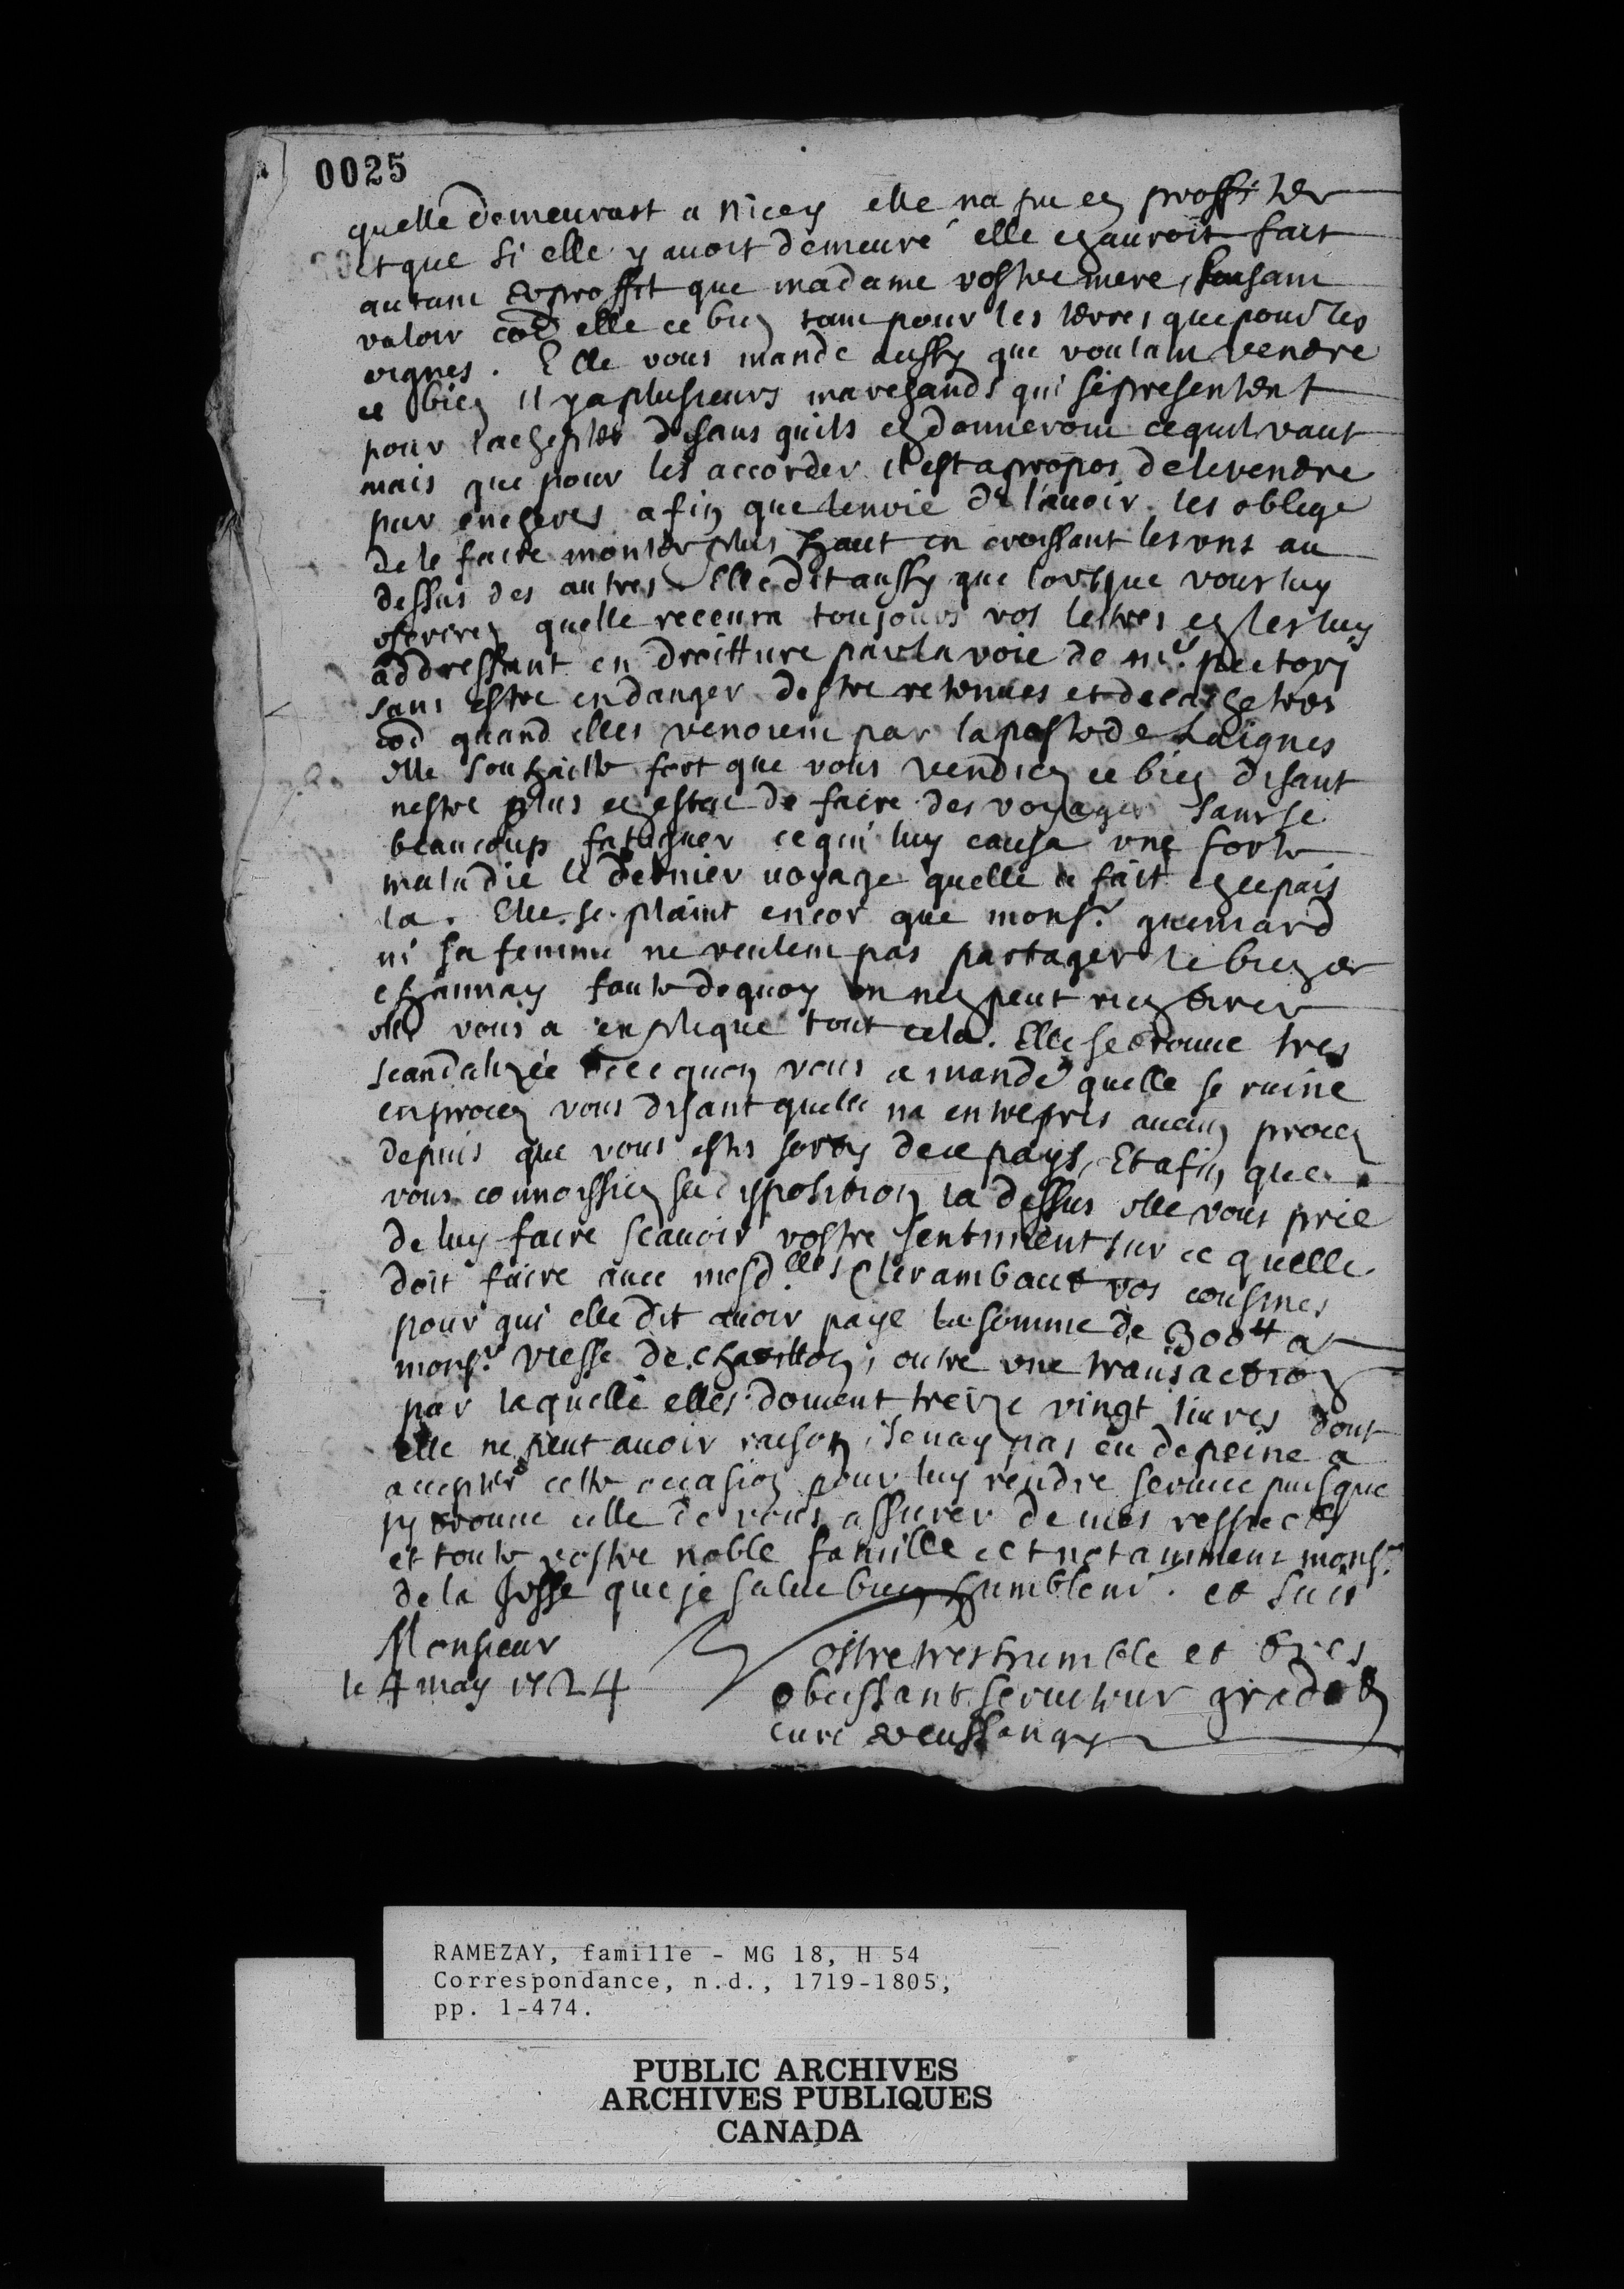 0025
quelle demeurast a nicey elle na pu en proffiter
et que si elle y auoit demeuré elle en auroit fait
autant de proffit que madame vostre mere faisant
valoir elle ce bien tant pour les terres que pour les
vignes. Elle vous mande aussy que voulant vendre
ce bien il y a plusieurs marchands qui se presentent
pour lachepter disans quils en donneront ce quil vaut
mais que pour les accorder il est a propos de le vendre
par encheres afin que lenvie de lauoir les oblige
de le faire monter plus haut en croissant les uns au
dessus des autres Elle dit aussy que lorsque vous luy
escrirez quelle receura toujours vos lettres en les luy
addressant en droitture par la voie de mr.
sans estre en danger destre retenues et decachetées
quand elles venoient par la poste de Laignes
elle souhaitte fort que vous vendiez ce bien disant
nestre plus en estat de faire des voyages sans se
beaucoup fatiguer ce qui luy causa une forte
maladie le dernier uoyage quelle a fait en ce pais
la. Elle se plaint encor que monsr. guenard
ni sa femme ne veulent pas partager le bien de
channay faute dequoy on nen peut rien tirer
elle vous a expliqué tout cela. Elle se trouue tres
scandalizée de ce quon vous a mandé quelle se ruine
en procez vous disant quelle na entrepris aucun procez
depuis que vous estes sorty de ce pays, Et afin que
vous connoissiez sa disposition la dessus elle vous prie
de luy faire scauoir vostre sentiment sur ce quelle
doit faire auec mesd.lles Clerambaut vos cousines
pour qui elle dit auoir payé la somme de 300tt a
monsr. viesse de chastillon, outre une transaction
par laquelle elles doiuent treize vingt liures dont
elle ne peut auoir raison, je nay pas eu de peine a
accepter cette occasion pour luy rendre seruice puisque
jy trouue celle de vous assurer de mes respects
et toute vostre noble famille et notamment monsr.
de la fosse que je salue bien humblemt. et suis
Monsieur
Vostre tres humble et tres
le 4 may 1724
obeissant seruiteur
curé
RAMEZAY, famille - MG 18, H 54
Correspondance, n.d., 1719-1805,
pp. 1-474.
PUBLIC ARCHIVES
ARCHIVES PUBLIQUES
CANADA